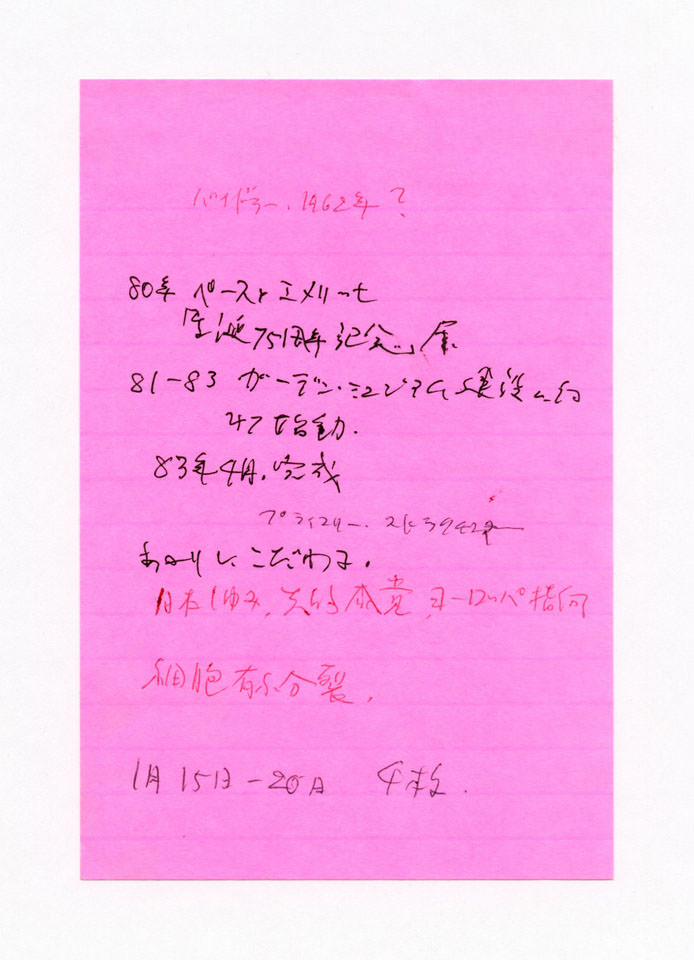 バイドラー、1962年?
80年 ペースとエメリッヒ
生誕75周年記念展
81-83 ガーデン・ミュージアム建設に向
始動.
83年4月. 完成
プライマリー. ストラクチュアー
あかりにこだわる.
日本 、ヨーロッパ指向
細胞 分裂.
1月15日-20日 4枚.